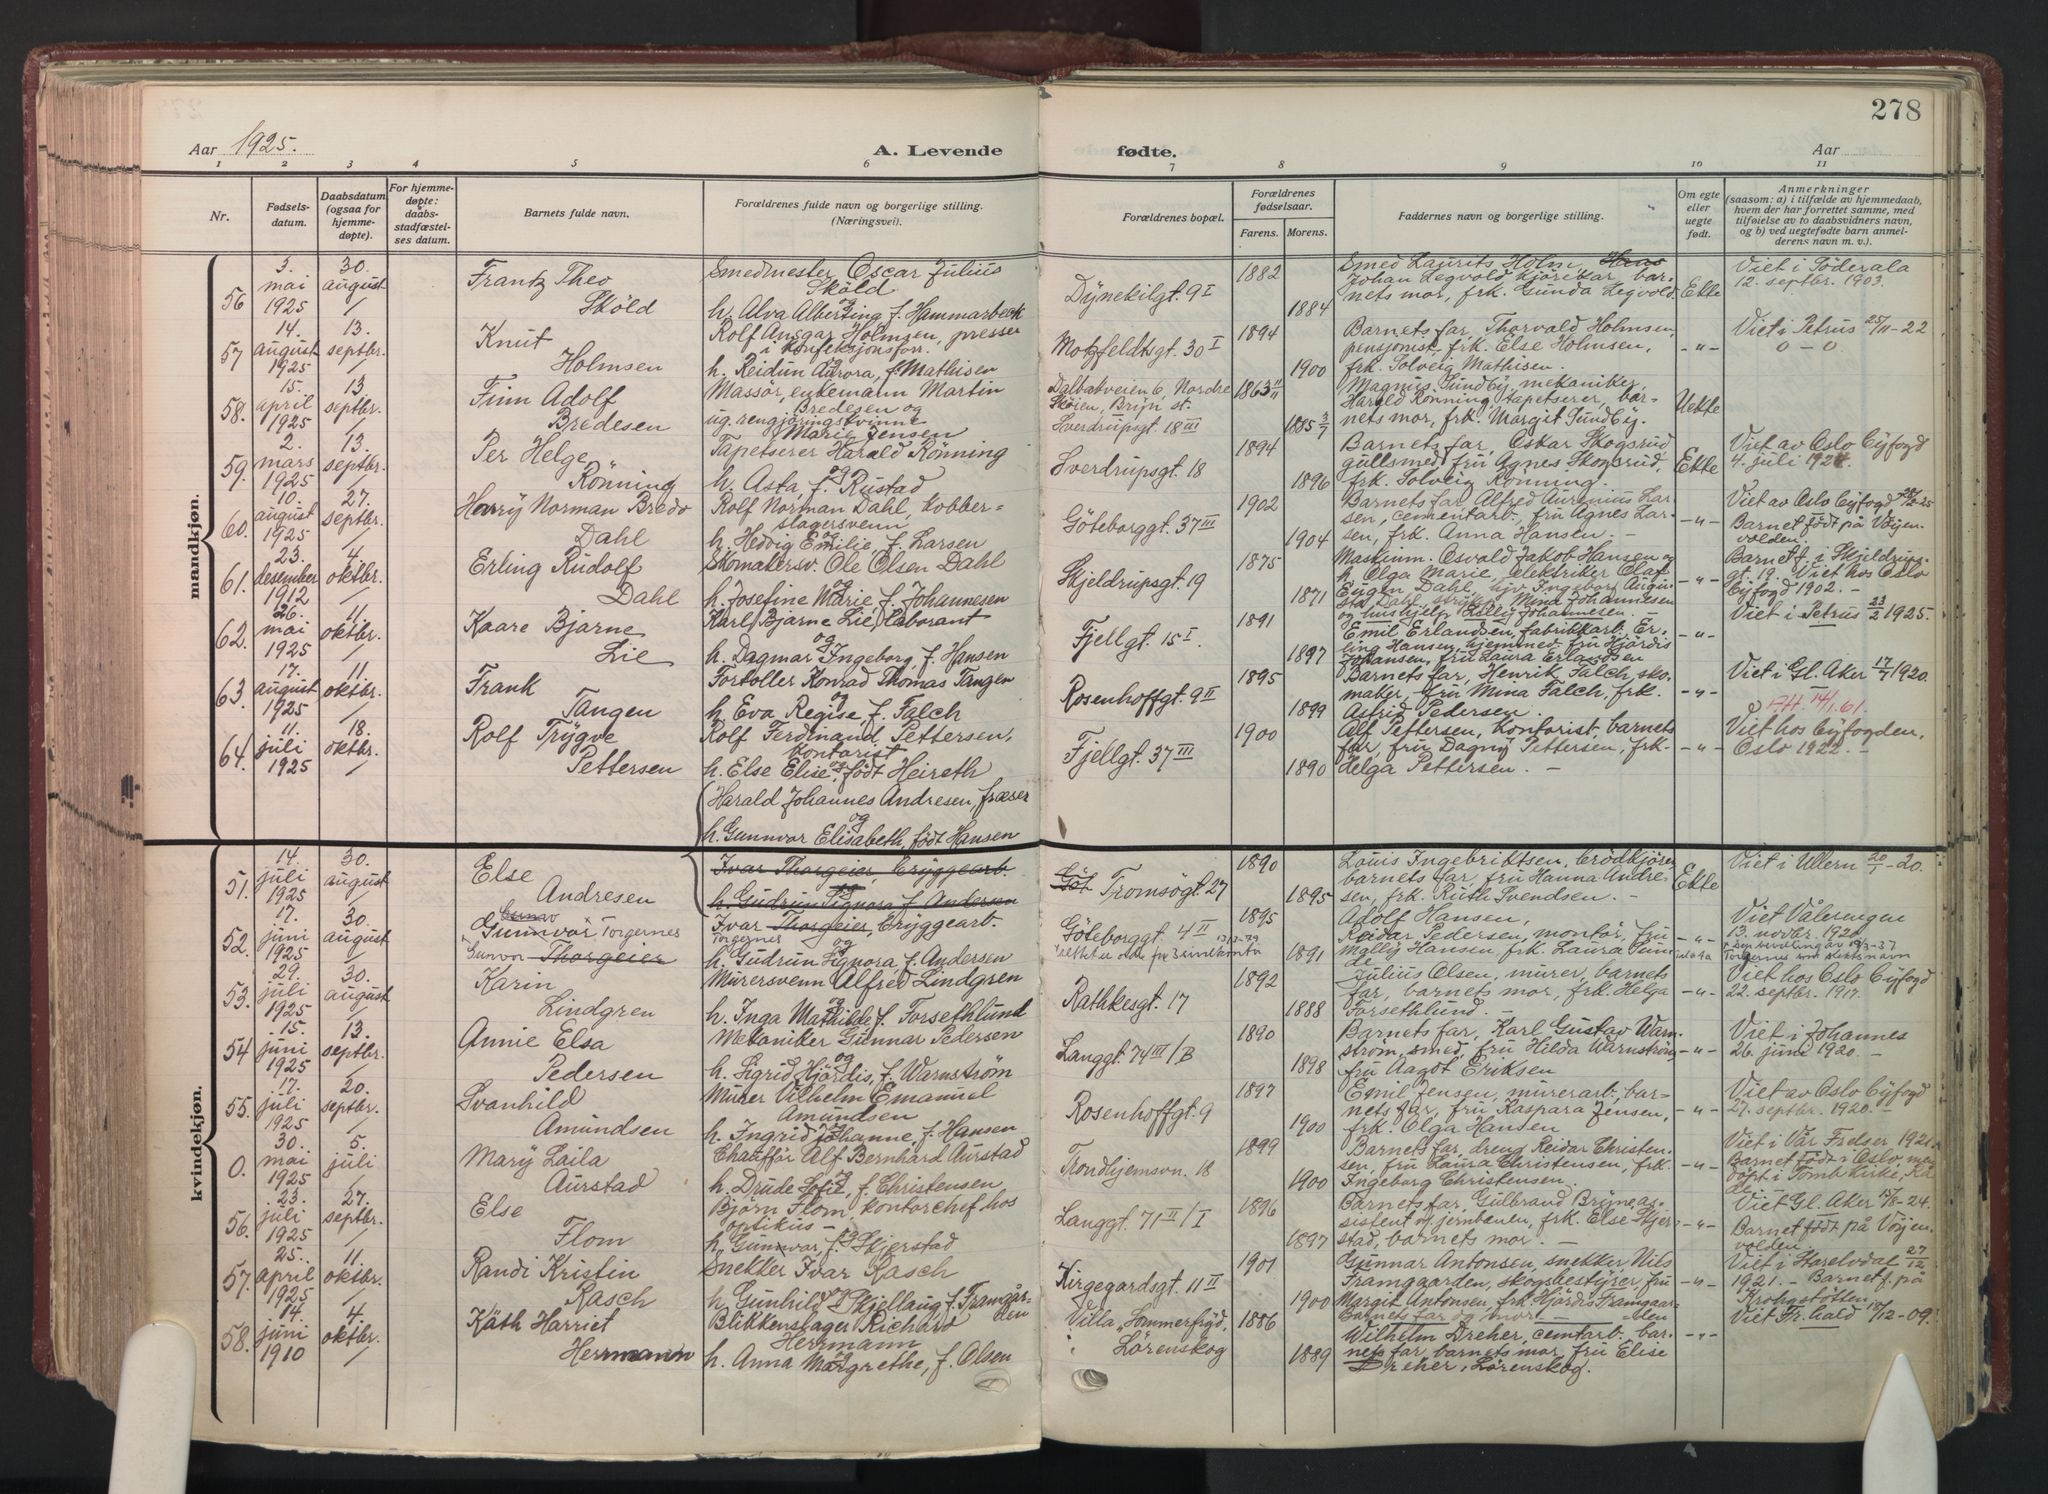 278
Aar 1925.
A. Levende fødte.
Aar
1 2 3 4 5 6 7 8 9 10 11
Nr.
Fødsels-
datum.
Daabsdatum
(ogsaa for
hjemme-
døpte).
For hjemme-
døpte:
daabs-
stadfæstel-
ses datum.
Barnets fulde navn.
Forældrenes fulde navn og borgerlige stilling.
(Næringsvei).
Forældrenes bopæl.
Forældrenes
fødselsaar.
Farens. Morens.
Faddernes navn og borgerlige stilling.
Om egte
eller
uegte
født.
Anmerkninger
(saasom: a) i tilfælde av hjemmedaab,
hvem der har forrettet samme, med
tilføielse av to daabsvidners navn,
og b) ved uegtefødte barn anmel-
derens navn m. v.).
mandkjøn.
56 3. mai 1925 30. august
Frantz Theo
Sköld
Smedmester Oscar Julius
Sköld
og
h. Alva Albertina f. Hammarbeck
Dÿnekilgt. 9 I
1882 1884
Smed Laurits Holm
Johan Legvold kjörekar, bar-
nets mor, frk. Gunda Legvold.
Ekte
Viet i Söderala
12. septbr. 1903.
57 14. august 1925 13. septbr.
Knut
Holmsen
Rolf Ansgar Holmsen, presser
i konfeksjonsforr.
og
h. Reidun Aurora, f. Mathisen
Motzfeldtsgt. 30 I
1894 1900
Barnets far, Thorvald Holmsen,
pensjonist, frk. Else Holmsen,
frk. Solveig Mathisen.
-"-
Viet i Petrus 25/11-22
0 - 0.
58. 15. april 1925 13. septbr.
Finn Adolf
Bredesen
Massör, enkemann Martin
Bredesen og
ug. rengjöringskvinne
Marie Jensen
Dalbakveien 6, Nordre
Skøien, Brÿn st.
Sverdrupsgt. 18 III
1863 1885
Magnus Sundbÿ, mekaniker,
Harald Rönning tapetserer, bar-
nets mor, frk. Margit Sundbÿ.
Uekte
59. 2. mars 1925 13. septbr.
Per Helge
Rönning
Tapetserer Harald Rönning
og
h. Asta f. Rustad
Sverdrupsgt. 18
1894 1896
Barnets far, Oskar Skogsrud
gullsmed, fru Agnes Skogsrud,
frk. Solveig Rönning.
Ekte
Viet av Oslo Bÿfogd
4. juli 1924.
60. 10. august 1925 27. septbr.
Harrÿ Norman Bredo
Dahl
Rolf Norman Dahl, kobber-
slagersvenn
og
h. Hedvig Emilie, f. Larsen
Göteborggt. 37 III
1902 1904
Barnets far Alfred Aurenius Lar-
sen, cementarb., fru Agnes Lar-
sen, frk. Anna Hansen. -
-"-
Viet av Oslo Bÿfogd
Barnet født på Vøÿen-
volden.
61. 23. desember 1912 4. oktbr.
Erling Rudolf
Dahl
Skomakersv. Ole Olsen Dahl
og
h. Josefine Marie f. Johannesen
Skjeldrupsgt. 19
1875 1871
Maskinm. Osvald Jakob Hansen og
h. Olga Marie, elektriker Olaf
Eugen Dahl, Ingeborg Augus-
ta Dahl, Mina Johannesen
og hushjelp Johannesen.
-"-
Barnet f. i Skjeldrups-
gt. 19. Viet hos Oslo
Bÿfogd 1902. -
62. 26. mai 1925 11. oktbr.
Kaare Bjarne
Lie
Karl Bjarne Lie, laborant
og
h. Dagmar Ingeborg, f. Hansen
Fjellgt. 15 I.
1891 1897
Emil Erlandsen, fabrikkarb. Er-
ling Hansen, hjemmed. fru Hjördis
Johansen, fru Laura Erlandsen
-"-
Viet i Petrus 23/2 1925.
63. 17. august 1925 11. oktbr.
Frank
Tangen
Fortoller Konrad Thomas Tangen
og
h. Eva Regise, f. Falch
Rosenhoffgt. 9 II
1895 1899
Barnets far, Henrik Falch, sko-
maker, fru Mina Falch, frk.
Astrid Pedersen.
-"-
Viet i Gl. Aker 17/7 1920.
14/1.61.
64. 11. juli 1925 18. oktbr.
Rolf Trÿgve
Pettersen
Rolf Ferdinand Pettersen,
kontorist
og
h. Else Elise, født Heireth
Fjellgt. 37 III
1900 1890
Alf Pettersen, kontorist, barnets
far, fru Dagnÿ Pettersen, frk.
Helga Pettersen. -
-"-
Viet hos Bÿfogden,
Oslo 1922. -
Harald Johannes Andresen, fræser
og
h. Gunnvor Elisabeth, født Hansen
kvindekjøn.
51. 14. juli 1925 30. august
Else
Andresen
Ivar Thorgeier, brÿggearb.
h. Gudrun Signora f. Andersen
Göt Tromsøgt. 27
1890 1895
Louis Ingebriktsen, brödkjører
barnets far, fru Hanna Andre-
sen, frk. Ruth Svendsen. -
Ekte
Viet i Ullern 20/1-20.
52. 17. juni 1925 30. august
Gunnvor Torgernes
Gunvor Thorgeier
Ivar Thorgeier, brÿggearb.
Torgernes og
h. Gudrun Signora f. Andersen
Göteborggt. 4 II
1895 1891
Adolf Hansen,
Reidar Pedersen, montör, fru
Mallÿ Hansen, frk. Laura Sun-
de
-"-
Viet Vålerengen
13. novbr. 1920
53. 29. juli 1925 30. august
Karin
Lindgren
Murersvenn Alfred Lindgren
og
h. Inga Mathilde f. Forsethlund
Rathkesgt. 17
1892 1888
Julius Olsen, murer, barnets
far, barnets mor, frk. Helga
Forsethlund. -
-"-
Viet hos Oslo Bÿfogd
22. septbr. 1917.
54 15. juni 1925 13. septbr.
Annie Elsa
Pedersen
Mekaniker Gunnar Pedersen
og
h. Sigrid Hjördis, f. Warnström
Langgt. 74 III / B
1890 1898
Barnets far, Karl Gustav Warn-
ström, smed, fru Hilda Warnström
fru Aagot Eriksen
-"-
Viet i Johannes
26. juni 1920. -
55. 17. juli 1925 20. septbr.
Svanhild
Amundsen
Murer Vilhelm Emanuel
Amundsen
h. Ingrid Johanne, f. Hansen
Rosenhoffgt. 9
1897 1900
Emil Jensen, murerarb., bar-
nets far, fru Kaspara Jensen,
frk. Olga Hansen
-"-
Viet av Oslo Bÿfogd
27. septbr. 1920. -
0. 30. mai 1925 5. juli
Marÿ Laila
Aurstad
Chauffør Alf Bernhard Aurstad
og
h. Drude Sofie, f. Christensen
Trondhjemsvn. 18
1899 1900
Barnets far, dreng Reidar Christen-
sen, fru Laura Christensen, frk.
Ingeborg Christensen.
-"-
Viet i Vår Frelser 1921
Barnet født i Oslo, men
døpt i Tomb kirke, Rå-
de
56. 23. juli 1925 27. septbr.
Else
Flom
Björn Flom, kontorchef hos
optikus -
og
h. Gunnvor, f. Skjerstad
Langgt. 71 II / I
1896 1897
Barnets far, Gulbrand Brÿne as-
sistent v. jernbanen, frk. Else Skjer-
stad, barnets mor. -
-"-
Viet Gl. Aker 15/8-24.
Barnet født på Vøÿen-
volden.
57. 25. april 1925 11. oktbr.
Randi Kristin
Rasch
Snekker Ivar Rasch
og
h. Gunhild Skjellaug f. Framgår-
den
Kirgegardsgt. 11 II
1901 1900
Gunnar Antonsen, snekker, Nils
Framgarden, skogsbestÿrer, fru
Margit Antonsen, frk. Hjördis Framgaar-
den
Barnets far og mor
-"-
Viet i Harelvdal 27/12
1921. - Barnet f. på
Krohgstøtten.
58. 14. juni 1910 4. oktbr.
Käth Harriet
Herrmann
Blikkenslager Richard
Herrmann
og
h. Anna Margrethe, f. Olsen
Villa „Sommerfrÿd,
i Lörenskog
1886 1889
Wilhelm Dreher, cemtarb., bar-
nets far, barnets mor, fru Elise
Dreher, Lörenskog.
-"-
Viet Fr. hald 12/12-09.